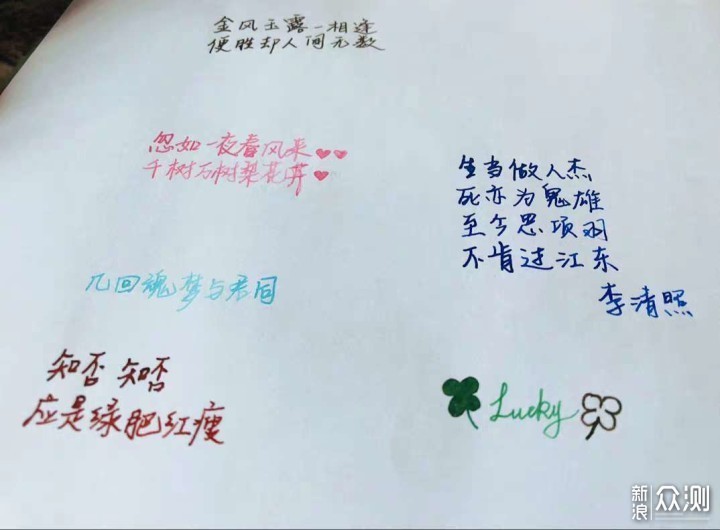 金风玉露一相逢
便胜却人间无数
忽如一夜春风来
千树万树梨花开
生当做人杰
死亦为鬼雄
至今思项羽
不肯过江东
李清照
几回魂梦与君同
知否 知否
应是绿肥红瘦
Lucky
新浪众测